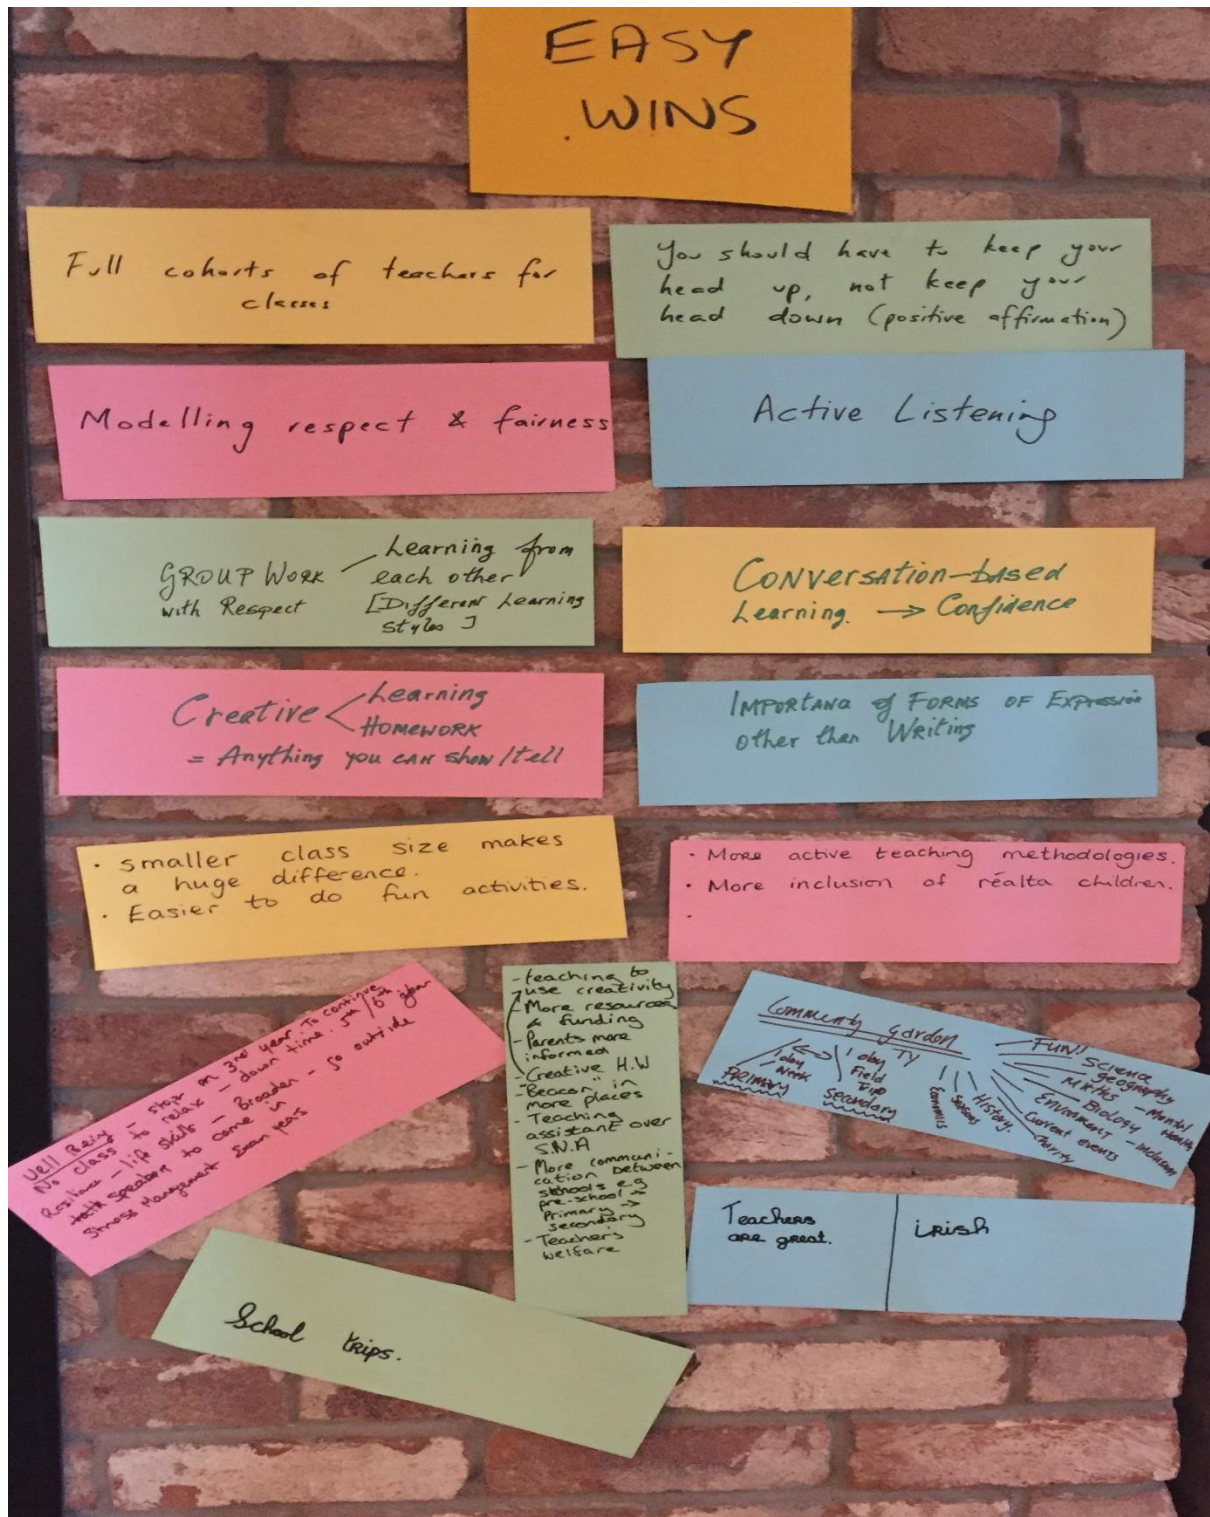 EASY
WINS
Full cohorts of teachers for
classes
You should have to keep your
head up, not keep your
head down (positive affirmation)
Modelling respect & fairness
Active Listening
GROUP WORK
with Respect
Learning from
each other
[Different Learning
Styles]
CONVERSATION-bASED
Learning. → Confidence
Creative
Learning
HOMEWORK
= Anything you CAN show/tell
IMPORTANCE of FORMS OF Expression
other than Writing
• smaller class size makes
a huge difference.
• Easier to do fun activities.
• More active teaching methodologies.
• More inclusion of réalta children.
•
Well Being - stops on 3rd year. To continue
No class to relax - down time. 5th/6th year
Resilience - life skills - Broaden - go outside
speakers to come in
Stress Management Exam years
- teaching to
use creativity
- More resources
& funding
- Parents more
informed
- Creative H.W
- "Beacon" in
more places
- Teaching
assistant over
S.N.A
- More communi-
cation between
schools e.g
pre-school →
Primary →
secondary
- Teacher's
welfare
Community garden
TY
1 day
Week
Primary
1 day
Field
Trip
Secondary
Economics
Seasons
History
Current events
Charity
FUN!!
Science
geography
MATHS
Biology - Mental
Health
Environment - inclusion
Teachers
are great.
irish
School trips.